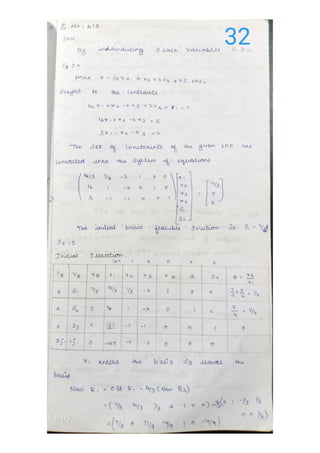 Q. NO: 413
32
Soln:
By introducing slack variables S1 ≥ 0,
S2 ≥ 0
Max Z = 107x1 + x2 + 2x3 + 0S1 + 0S2
Subject to the Constraints
14x1 + x2 - 6x3 + 3x4 + S1 = 7
16x1 + x2 - 6x3 = 5
3x1 - x2 - x3 = 0
The set of Constraints of the given LPP are
converted into the system of equations
14/3 1/3 -2 1 0 0 x1 7/3
16 1 -6 0 1 0 x2 = 5
3 -1 -1 0 0 1 x3 0
x4
S1
S2
The initial basic feasible solution is
S2 = 5
Initial Iteration
CB YB XB x1 x2 x3 x4 S1 S2 θ = XB/x1
0 7/3 14/3 1/3 -2 1 0 0 = 1/2
0 S2 5 16 1 -6 0 1 0
0 S3 0 3 -1 -1 0 0 1 0
Zj - Cj 0 -107 -1 -2 0 0 0
x1 enters the basis S3 leaves the
basis
New R1 = Old R1 - 14/3 (New R3)
= (7/3 14/3 1/3 -2 1 0 0) - 14/3 (0 1 -1/3 -1/3
0 0 1/3)
= (7/3 0 17/9 -4/9 1 0 -14/9)